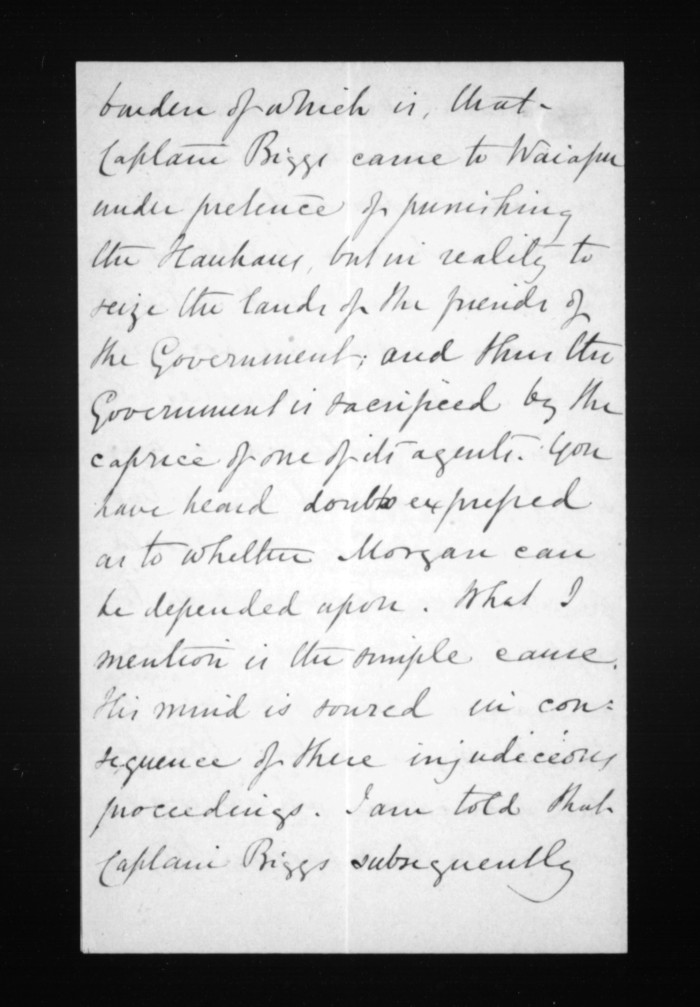 burden of which is, that
Captain Biggs came to Waiapu
under pretence of punishing
the Hauhaus, but in reality to
seize the lands of the friends of
the Government; and thus the
Government is sacrificed by the
caprice of one of its agents. You
have heard doubts expressed
as to whether Morgan can
be depended upon. What I
mention is the simple cause.
His mind is soured in con=
sequence of these injudicious
proceedings. I am told that
Captain Biggs subsequently